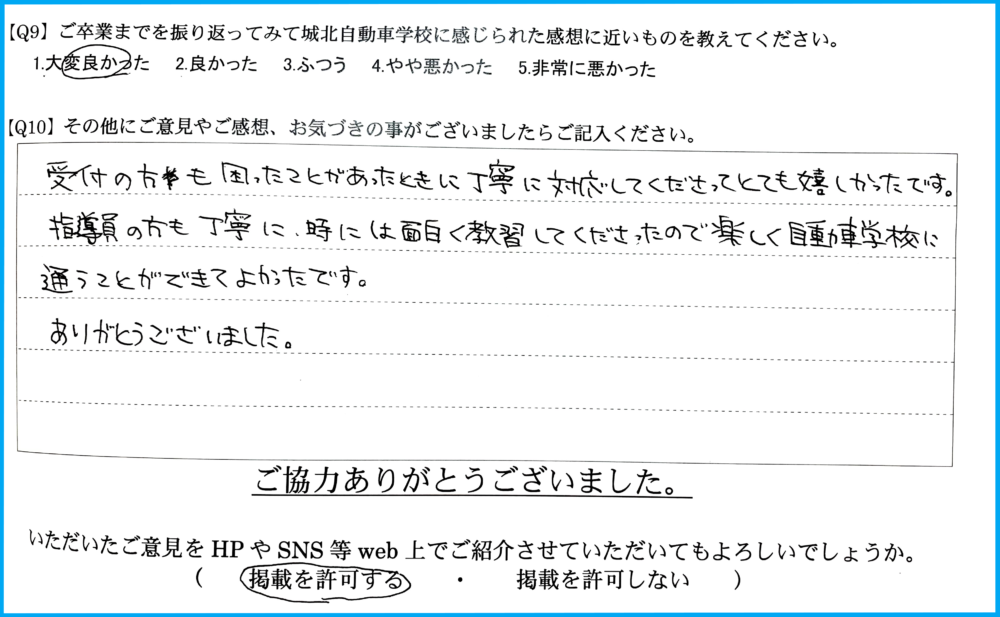 【Q9】ご卒業までを振り返ってみて城北自動車学校に感じられた感想に近いものを教えてください。
1.大変良かった 2.良かった 3.ふつう 4.やや悪かった 5.非常に悪かった
【Q10】その他にご意見やご感想、お気づきの事がございましたらご記入ください。
受付の方も困ったことがあったときに丁寧に対応してくださってとても嬉しかったです。
指導員の方も丁寧に、時には面白く教習してくださったので楽しく自動車学校に
通うことができてよかったです。
ありがとうございました。
ご協力ありがとうございました。
いただいたご意見をHPやSNS等web上でご紹介させていただいてもよろしいでしょうか。
( 掲載を許可する ・ 掲載を許可しない )